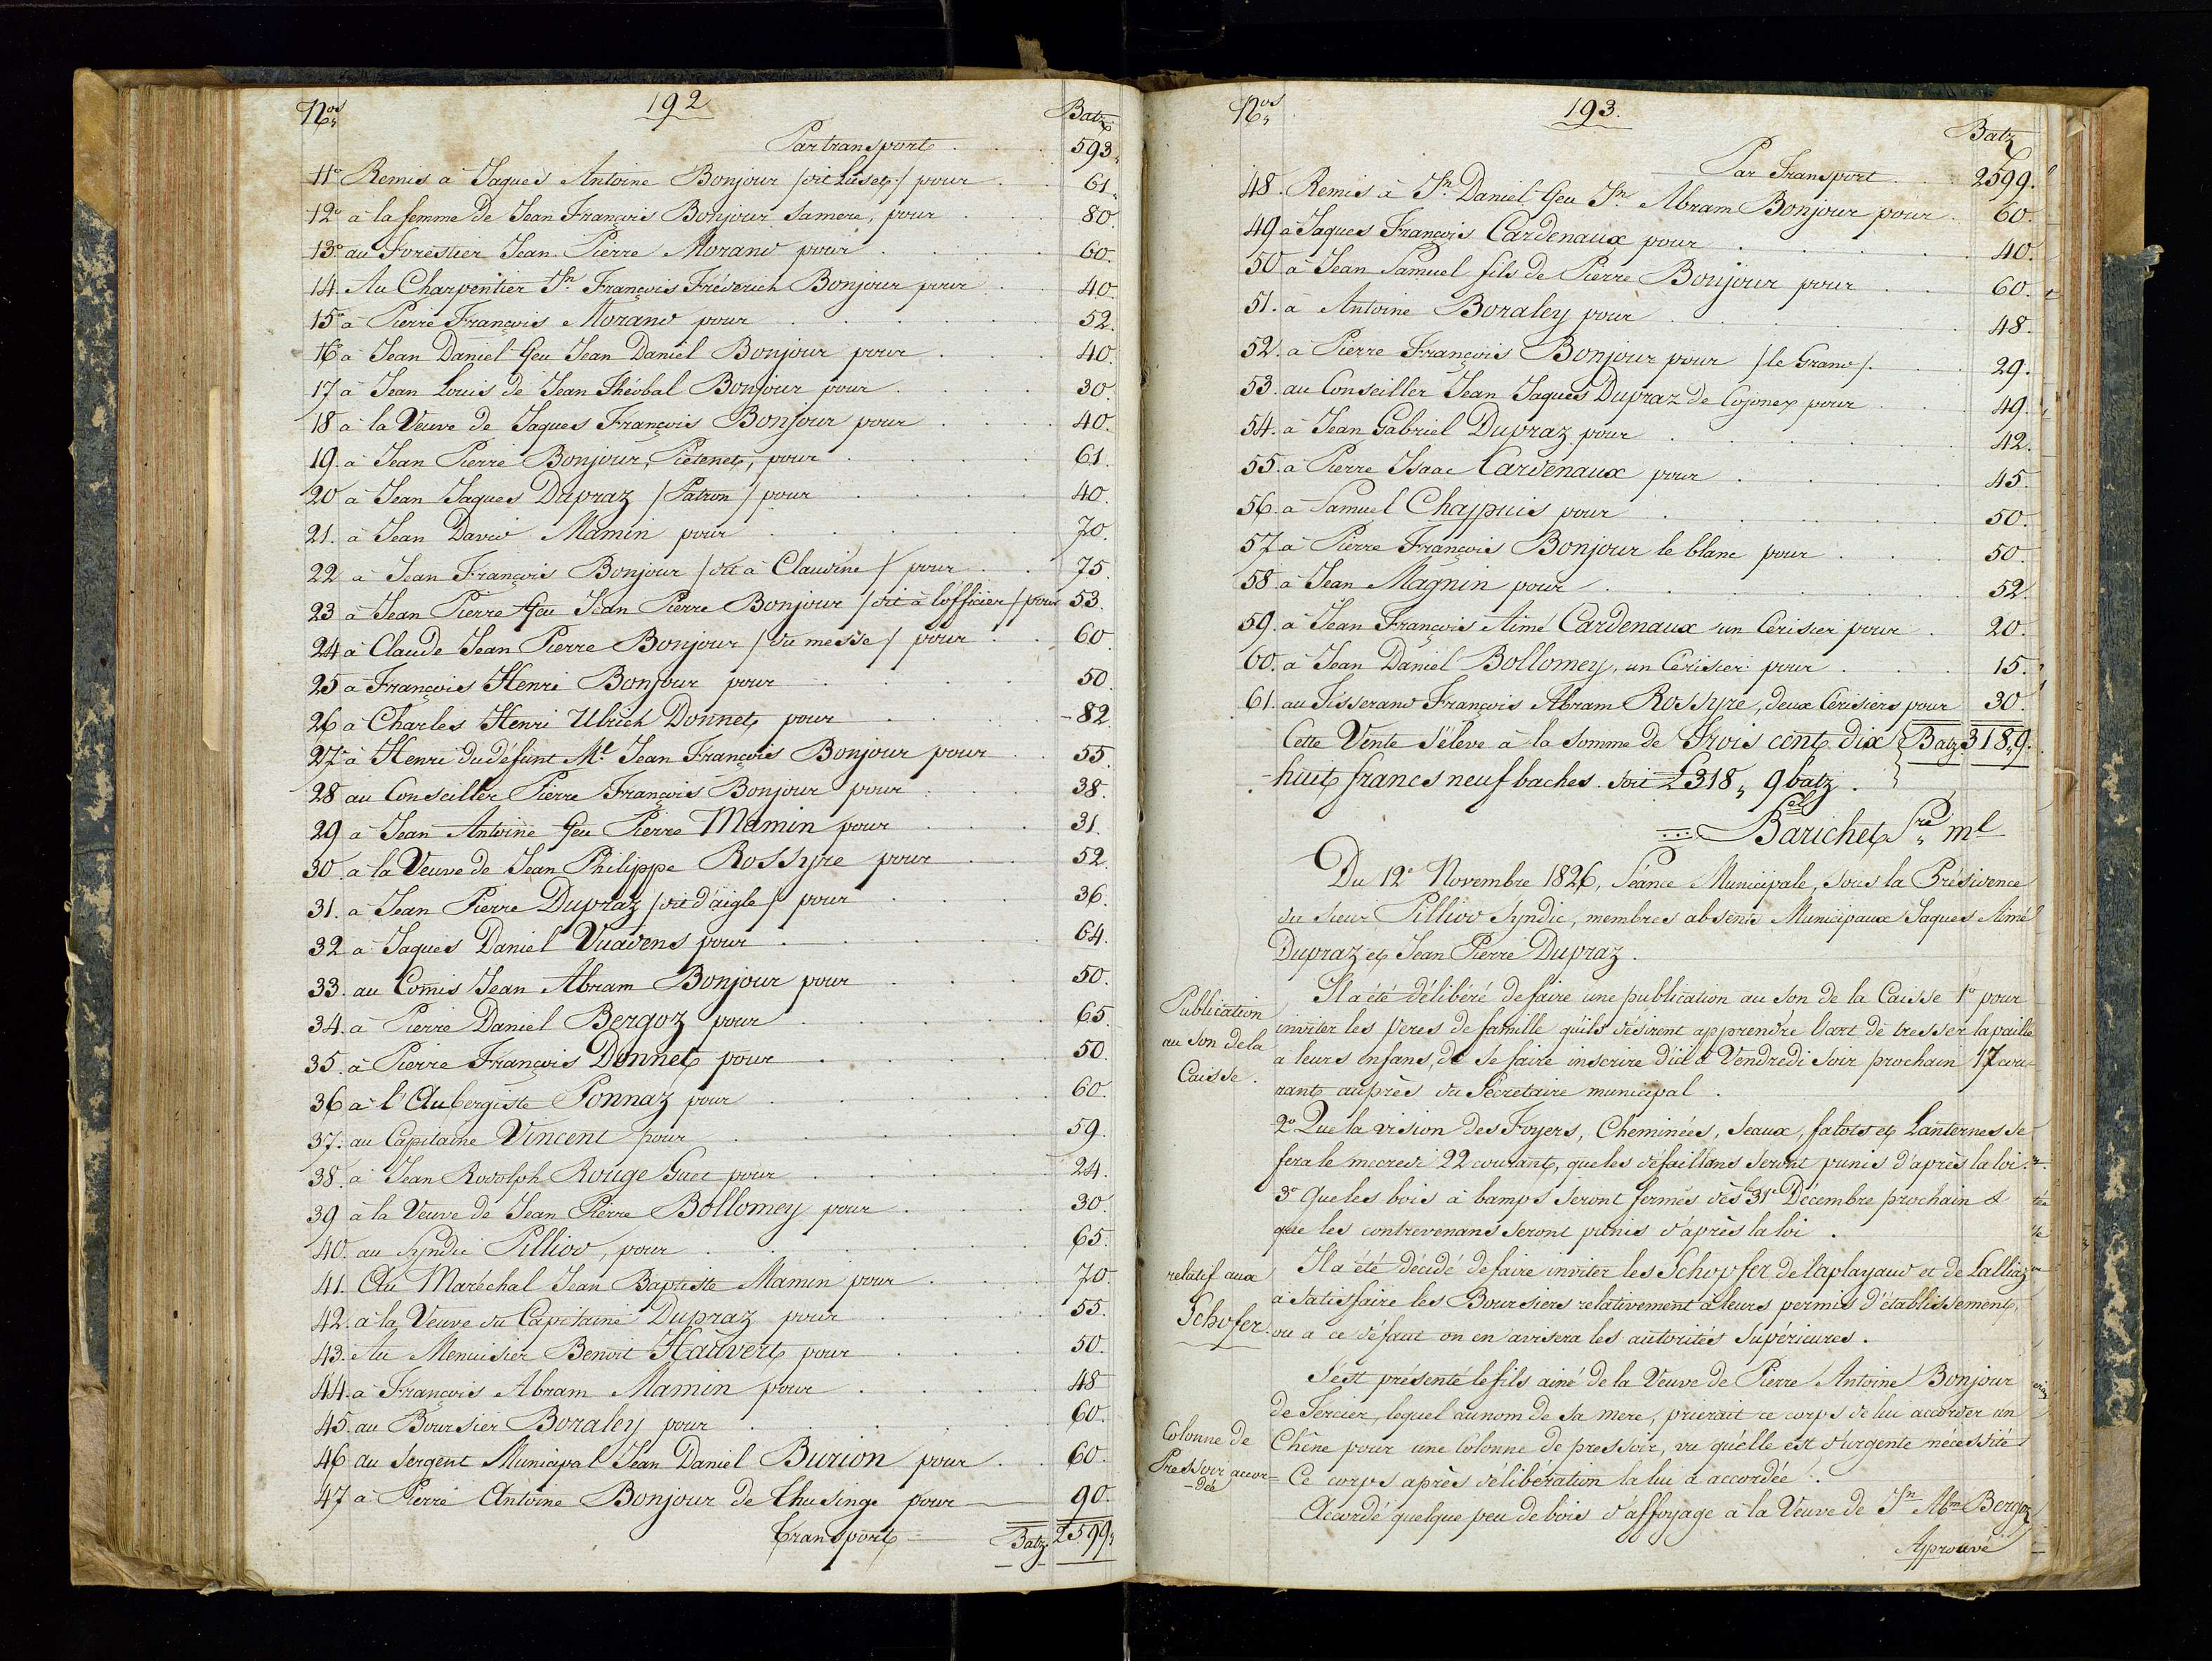 192
Nos Batz
Par transport 593
11° Remis à Jaques Antoine Bonjour /dit Luset/ pour 61
12° à la femme de Jean François Bonjour samere, pour 80
13° au Forestier Jean Pierre Morand pour 60.
14. Au Charpentier Jn François Fréderich Bonjour pour 40.
15° à Pierre François Morand pour 52.
16° à Jean Daniel feu Jean Daniel Bonjour pour 40.
17 à Jean Louis de Jean Théobal Bonjour pour 30.
18 à la Veuve de Jaques François Bonjour pour 40.
19. à Jean Pierre Bonjour, Pietenet, pour 61.
20 à Jean Jaques Dupraz /Patron/ pour 40.
21. à Jean David Mamin pour 70.
22 à Jean François Bonjour /dit à Claudine/ pour 75.
23 à Jean Pierre feu Jean Pierre Bonjour /dit à l'officier/ pour 53.
24 à Claude Jean Pierre Bonjour /du messe/ pour 60
25 à François Henri Bonjour pour 50
26 à Charles Henri Ulrich Donnet pour 82
27 à Henri du défunt Ml Jean François Bonjour pour 55.
28 au Conseiller Pierre François Bonjour pour 38.
29 à Jean Antoine feu Pierre Mamin pour 31.
30. à la Veuve de Jean Philippe Rossyre pour 52
31. à Jean Pierre Dupraz /dit d'aigle/ pour 36.
32 à Jaques Daniel Vuadens pour 64.
33. au Comis Jean Abram Bonjour pour 50.
34. à Pierre Daniel Bergoz pour 65
35. à Pierre François Donnet pour 50
36 à l'Aubergiste Ponnaz pour 60.
37. au Capitaine Vincent pour 59.
38. à Jean Rodolph Rouge Guet pour 24.
39 à la Veuve de Jean Pierre Bollomey pour 30.
40. au Syndic Pilliod, pour 65.
41. Au Maréchal Jean Baptiste Mamin pour 70.
42. à la Veuve du Capitaine Dupraz pour 55.
43. Au Menuisier Benoit Hauvert pour 50.
44. à François Abram Mamin pour 48
45. au Boursier Boraley pour 60.
46 au Sergent Municipal Jean Daniel Burion pour 60.
47 à Pierre Antoine Bonjour de Chusinge pour 90.
Transport Batz 2599
193.
Nos Batz
Par Transport 2599.
48. Remis à Jn Daniel feu Jn Abram Bonjour pour 60.
49 à Jaques François Cardenaux pour 40.
50 à Jean Samuel fils de Pierre Bonjour pour 60.
51. à Antoine Boraley pour 48.
52. à Pierre François Bonjour pour /le Grand/. 29.
53. au Conseiller Jean Jaques Dupraz de Cojonex pour 49.
54. à Jean Gabriel Dupraz pour 42.
55. à Pierre Isaac Cardenaux pour 45.
56. à Samuel Chappuis pour 50.
57 à Pierre François Bonjour le blanc pour 50.
58 à Jean Magnin pour 52.
59. à Jean François Aimé Cardenaux un Cerisier pour 20.
60. à Jean Daniel Bollomey, un Cérisier pour 15.
61. au Tisserand François Abram Rossyre, deux Cérisiers pour 30.
Cette Vente s'éleve à la somme de Trois cent dix Batz 318„9.
huit francs neuf baches. soit £318„ 9 batz.
Barichet Sre ml
Du 12e Novembre 1826, Séance Municipale, sous la Présidence
du sieur Pilliod Syndic, membres absents Municipaux Jaques Aimé
Dupraz et Jean Pierre Dupraz.
Publication
au son de la
Caisse.
Il a été délibéré de faire une publication au son de la Caisse 1° pour
inviter les peres de famille qu'ils désirent apprendre l'art de tresser la paille
à leurs enfans, de se faire inscrire d'ici à Vendredi soir prochain 17 cou-
rant auprès du Sécretaire municipal.
2° Que la vision des Foyers, Cheminées, Seaux, falots et Lanternes se
fera le mecredi 22 courant, que les défaillans seront punis d'après la loi.
3° Que les bois à bamps seront fermés dès le 31e Décembre prochain &
que les contrevenans seront punis d'après la loi.
relatif aux
Schofer.
Il a été décidé de faire inviter les Schopfer de laplayaud et de Lalliaz
à satisfaire les Boursiers relativement à leurs permis d'établissement,
ou à ce défaut on en avisera les autorités Supérieures.
S'est présenté le fils ainé de la Veuve de Pierre Antoine Bonjour
de Tercier, lequel au nom de sa mere, prierait ce corps de lui accorder un
Colonne de
Pressoir accor-
dée
Chêne pour une Colonne de pressoir, vu qu'elle est d'urgente nécessité
Ce corps après délibération la lui a accordée.
Accordé quelque peu de bois d'affoyage à la Veuve de Jn Abm Bergoz
Approuvé